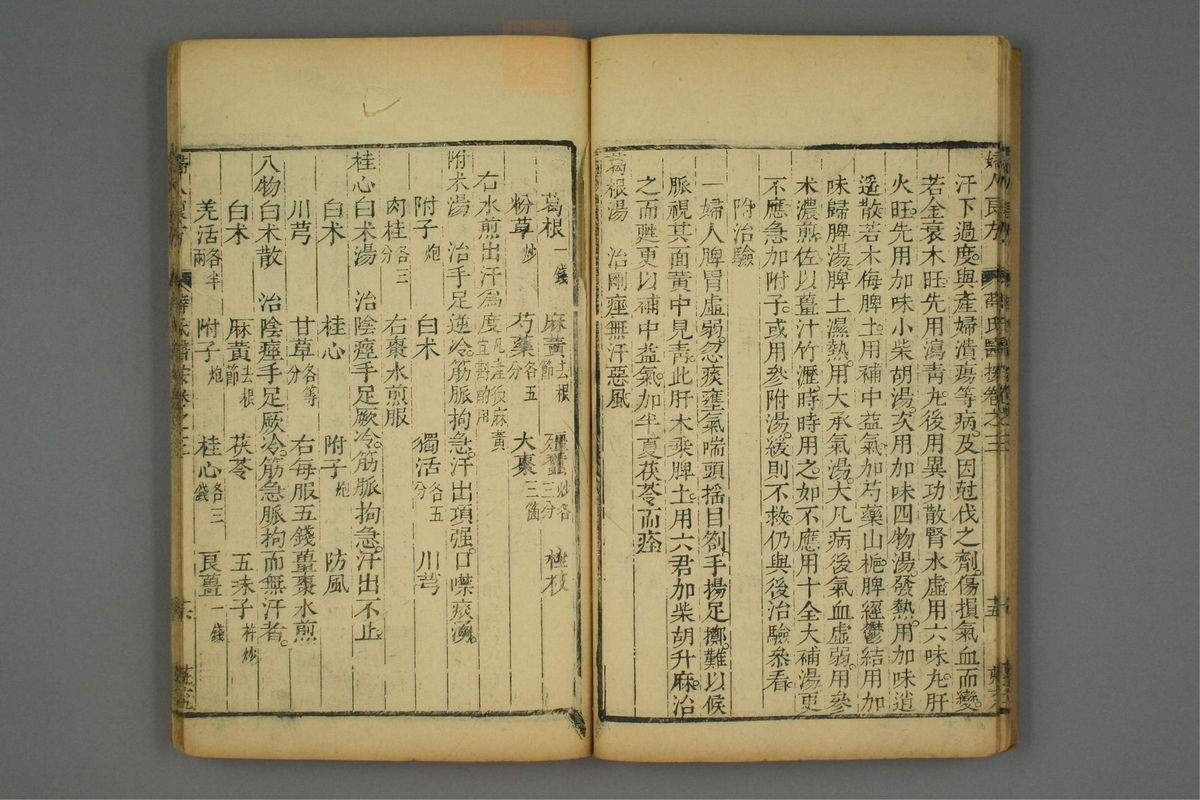 婦人良方 薛氏醫按卷之三 五
汗下過度與產婦潰瘍等病及因尅伐之劑傷損氣血而變
若金衰木旺先用瀉青丸後用異功散腎水虛用六味丸肝
火旺先用加味小柴胡湯次用加味四物湯發熱用加味逍
遙散若木侮脾土用補中益氣加芍藥山梔脾經鬱結用加
味歸脾湯脾土濕熱用大承氣湯大凡病後氣血虛弱用參
朮濃煎佐以薑汁竹瀝時時用之如不應用十全大補湯更
不應急加附子或用參附湯緩則不救仍與後治驗叅看
附治驗
一婦人脾胃虛弱忽痰壅氣喘頭搖目劄手揚足擲難以候
脈視其面黃中見青此肝木乘脾土用六君加柴胡升麻治
之而甦更以補中益氣加半夏茯苓而痊
葛根湯 治剛痙無汗惡風
葛根一錢 麻黃去根節 殭蠶炒各三分 桂枝
粉草炒 芍藥各五分 大棗三箇
右水煎出汗爲度凡產後麻黃宜斟酌用
附朮湯 治手足逆冷筋脈拘急汗出項强口噤痰湧
附子炮 白朮 獨活各五分 川芎
肉桂各三分 右棗水煎服
桂心白朮湯 治陰痙手足厥冷筋脈拘急汗出不止
白朮 桂心 附子炮 防風
川芎 甘草各等分 右每服五錢薑棗水煎
八物白朮散 治陰痙手足厥冷筋急脈拘而無汗者
白朮 麻黃去根節 茯苓 五味子杵炒
羌活各半兩 附子炮 桂心各三錢 良薑一錢
婦人良方